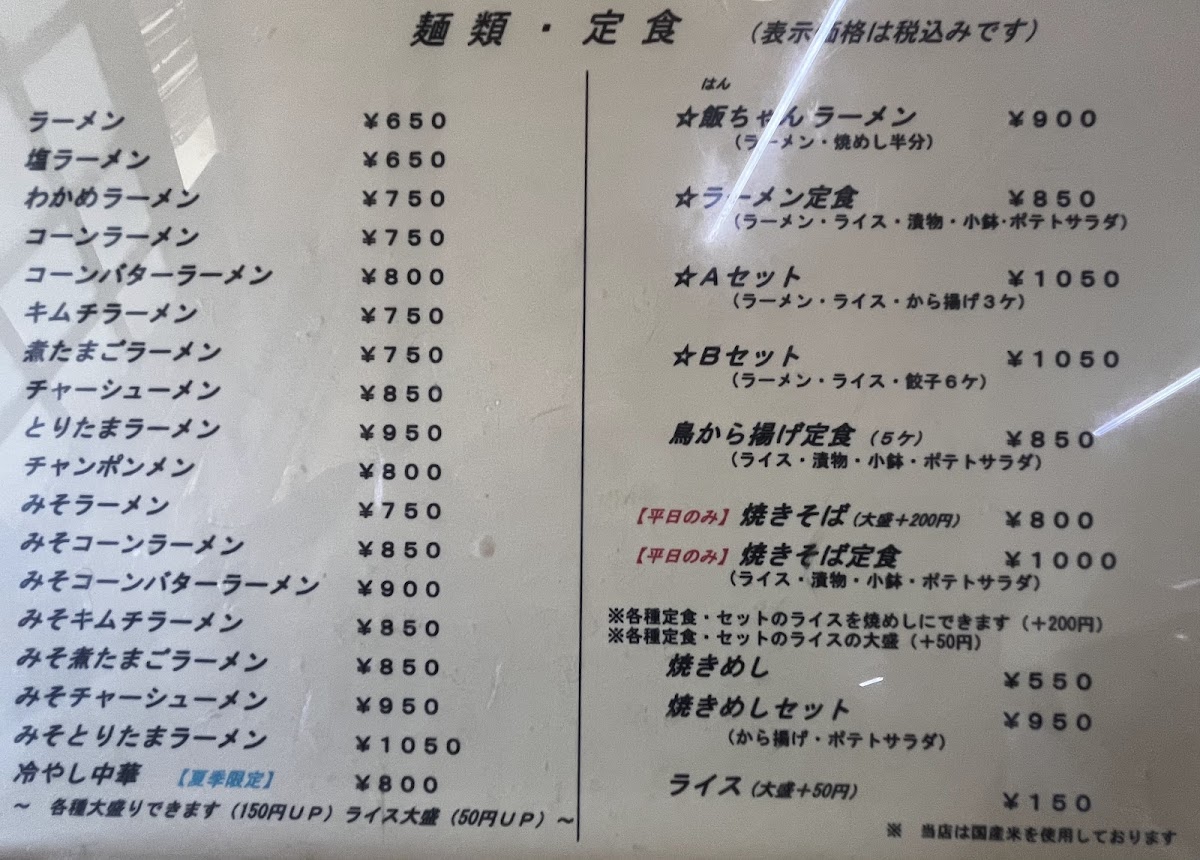 麺類・定食 (表示価格は税込みです)
ラーメン ￥650
塩ラーメン ￥650
わかめラーメン ￥750
コーンラーメン ￥750
コーンバターラーメン ￥800
キムチラーメン ￥750
煮たまごラーメン ￥750
チャーシューメン ￥850
とりたまラーメン ￥950
チャンポンメン ￥800
みそラーメン ￥750
みそコーンラーメン ￥850
みそコーンバターラーメン ￥900
みそキムチラーメン ￥850
みそ煮たまごラーメン ￥850
みそチャーシューメン ￥950
みそとりたまラーメン ￥1050
冷やし中華 【夏季限定】 ￥800
～ 各種大盛りできます（150円ＵＰ）ライス大盛（50円ＵＰ）～
はん
☆飯ちゃんラーメン ￥900
（ラーメン・焼めし半分）
☆ラーメン定食 ￥850
（ラーメン・ライス・漬物・小鉢・ポテトサラダ）
☆Ａセット ￥1050
（ラーメン・ライス・から揚げ３ケ）
☆Ｂセット ￥1050
（ラーメン・ライス・餃子６ケ）
鳥から揚げ定食（５ケ） ￥850
（ライス・漬物・小鉢・ポテトサラダ）
【平日のみ】焼きそば（大盛＋200円） ￥800
【平日のみ】焼きそば定食 ￥1000
（ライス・漬物・小鉢・ポテトサラダ）
※各種定食・セットのライスを焼めしにできます（＋200円）
※各種定食・セットのライスの大盛（＋50円）
焼きめし ￥550
焼きめしセット ￥950
（から揚げ・ポテトサラダ）
ライス（大盛＋50円） ￥150
※ 当店は国産米を使用しております